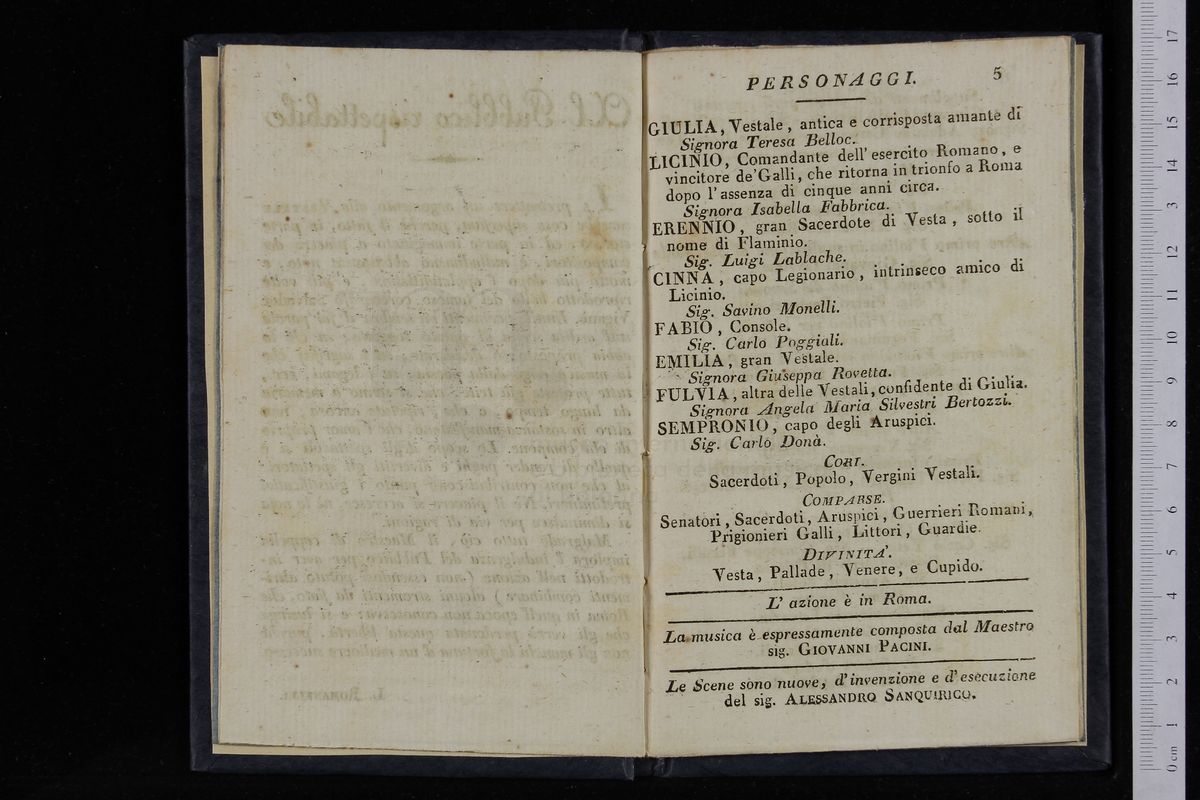 PERSONAGGI. 5
GIULIA, Vestale, antica e corrisposta amante di
Signora Teresa Belloc.
LICINIO, Comandante dell' esercito Romano, e
vincitore de' Galli, che ritorna in trionfo a Roma
dopo l'assenza di cinque anni circa.
Signora Isabella Fabbrica.
ERENNIO, gran Sacerdote di Vesta, sotto il
nome di Flaminio.
Sig. Luigi Lablache.
CINNA, capo Legionario, intrinseco amico di
Licinio.
Sig. Savino Monelli.
FABIO, Console.
Sig. Carlo Poggiali.
EMILIA, gran Vestale.
Signora Giuseppa Rovetta.
FULVIA, altra delle Vestali, confidente di Giulia.
Signora Angela Maria Silvestri Bertozzi.
SEMPRONIO, capo degli Aruspici.
Sig. Carlo Donà.
CORI.
Sacerdoti, Popolo, Vergini Vestali.
COMPARSE.
Senatori, Sacerdoti, Aruspici, Guerrieri Romani,
Prigionieri Galli, Littori, Guardie.
DIVINITA'.
Vesta, Pallade, Venere, e Cupido.
L' azione è in Roma.
La musica è espressamente composta dal Maestro
sig. GIOVANNI PACINI.
Le Scene sono nuove, d'invenzione e d'esecuzione
del sig. ALESSANDRO SANQUIRICO.
0 cm 1 2 3 4 5 6 7 8 9 10 11 12 13 14 15 16 17